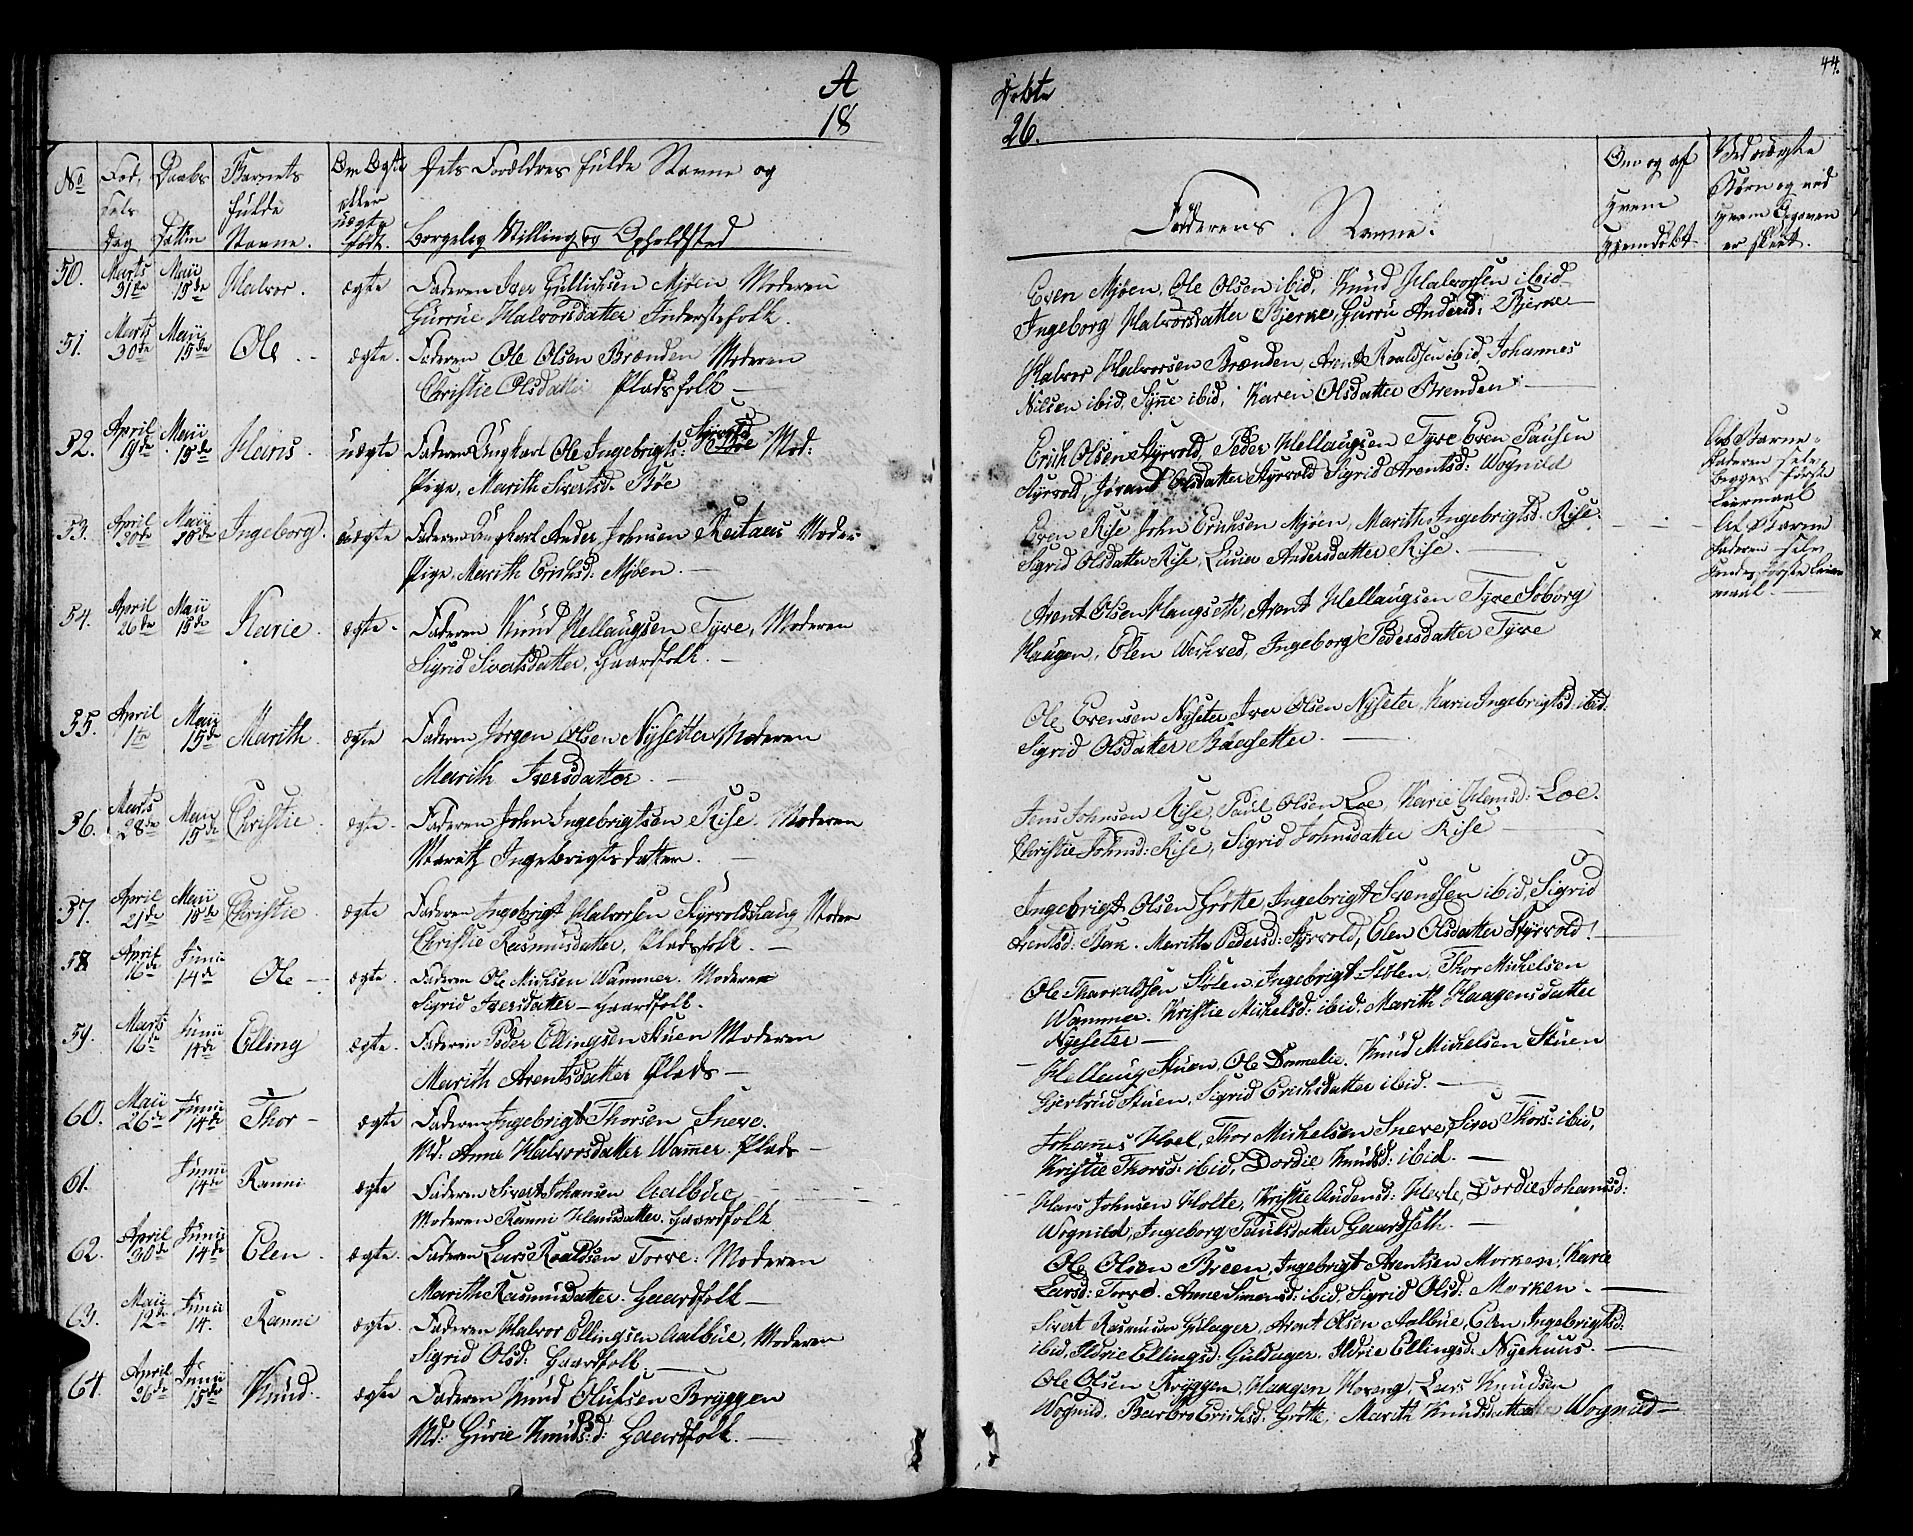 A
18
№
Fød,
sels
Dag
Daabs
Datum
Barnets
fulde
Navne.
Om Ægte
eller
uægte
født.
Dets Forældres fulde Navne og
Borgelig Stilling og Opholdsted
50. Marts 31te Maii 15de Halvor. ægte Faderen Iver Gullichsen Mjöen Moderen
Gurrue Halvorsdatter Inderstefolk.
51. Marts 30te Maii 15de Ole ægte. Faderen Ole Olsen Brænden Moderen
Christie Olsdatter Pladsfolk —
52. April 19de Maii 15de uægte Faderen Ungkarl Ole Ingebrigts: Styrvold Mod:
Pige, Marith Sivertsd. Böe
53. April 20de Maii Ingeborg. uægte Faderen Ungkarl Ander Johnsen Reitaas Moder
Pige, Marith Erichsd: Mjöen. —
54. April 26de Maii 15de Karie. ægte. Faderen Knud Hellaugsen Tyve, Moderen
Sigrid Sivertsdatter, Gaardfolk. —
55. April 1te Maii 15de Marith. ægte Faderen Jørgen Olsen Nysetter Moderen
Marith Iversdatter. —
56. Marts 28de Maii 15de Christie. ægte. Faderen John Ingebrigtsen Rise. Moderen
Marith Ingebrigtsdatter. —
57. April 21de Maii 15de Christie. ægte Faderen Ingebrigt Halvorsen Styrvoldshaug Moder
Christie Rasmusdatter, Pladsfolk. —
58 April 16de Junii 14de Ole — ægte. Faderen Ole Michsen Wammer. Moderen
Sigrid Iversdatter — Gaardfolk.
59. Marts 16de Junii 14de Elling ægte. Faderen Peder Ellingsen Stuen Moderen
Marith Arentsdatter Plads —
60. Maii 26de Junii 14de Thor — ægte Faderen Ingebrigt Thorsen Sneve.
Md. Anne Halvorsdatter Wamer. Plads —
61. Junii 14de Ranni ægte Faderen Sivert Johansen Aalbue,
Moderen Ranni Hansdatter. Gaardfolk
62. April 30de Junii 14de Elen. ægte. Faderen Lars Roaldsen Torve: Moderen
Marith Rasmusdatter. Gaardfolk —
63. Maii 12de Junii 14. Ranni ægte. Faderen Halvor Ellingsen Aalbue, Moderen
Sigrid Olsd: Gaardfolk. —
64. April 26de Junii 15de Knud. ægte. Faderen Knud Olufsen Bryggen
Md: Gurie Knudsd: Gaardfolk. —
44.
Døbte
26.
Fadderens Navne.
Om og af
Hvem
Hjemdøbt
Ved uægte
Børn og ved
Hvem Besoven
er skeet.
Even Mjöen, Ole Olsen ibid, Knud Halvorsen ibid
Ingeborg Halvorsdatter Bjerke, Gurru Andersd: Bjerke —
Halvor Halvorsen Brænden, Arent Roaldsen ibid, Johannes
Nilsen ibid, Syne ibid, Karen Olsdatter Brenden. —
Erich Olsen Styrvold, Peder Hellaugsen Tyve Even Paulsen
Styrvold, Jørand Olsdatter Styrvold Sigrid Arentsd: Wognild
Barne-
Faderen selv,
begges første
Leiermaal
Even Rise John Erichsen Mjöen, Marith Ingebrigtsd: Rise.
Sigrid Olsdatter Rise, Andersdatter Rise. —
Af Barne
Faderen selv
første Leier
maal. —
Arent Olsen Haugseth, Arent Hellaugsen Tyve Söborg
Haugen, Elen Ingeborg Pedersdatter Tyve
Ole Evensen Nyseter Iver Olsen Nyseter, Karie Ingebrigtsd: ibid:
Sigrid Olsdatter —
Jens Johnsen Rise, Paul Olsen Loe, Karie Hansd: Loe.
Christie Johnsd: Rise, Sigrid Johnsdatter Rise —
Ingebrigt Olsen Grötte, Ingebrigt Svendsen ibid, Sigrid
Arentsd: Bak. Marith Pedersd: Styrvold, Elen Olsdatter Styrvold!
Ole Thoraldsen Stölen, Ingebrigt Stölen, Thor Michelsen
Wammer. Kristie Michelsd: ibid. Marith Haagensdatter
Nyseter —
Hellaug Stuen, Ole Donnelie. Knud Michelsen Stuen
Gjertrud Stuen, Sigrid Erichsdatter ibid. —
Johannes Hoel, Thor Michelsen Sneve, Siva Thors: ibid,
Kristie Thorsd: ibid, Dordie Knudsd: ibid. —
Hans Johnsen Holte, Kristie Andersd: Dordie Johansd:
Wognild, Ingeborg Paulsdatter Gaardfolk. —
Ole Olsen Breen, Ingebrigt Arentsen Morken, Karie
Larsd: Torve. Anne Simonsd: ibid, Sigrid Olsd: Morken. —
Sivert Rasmusen Gulager, Arent Olsen Aalbue, Elen Ingebrigtsd:
ibid, Ildrie Ellingsd: Guldager. Ildrie Ellingsd: Nyehuus. —
Ole Olsen Bryggen, Haagen Horeng, Lars Knudsen
Wognild, Barbro Erichsd: Grötte, Marith Knudsdatter Wognild —